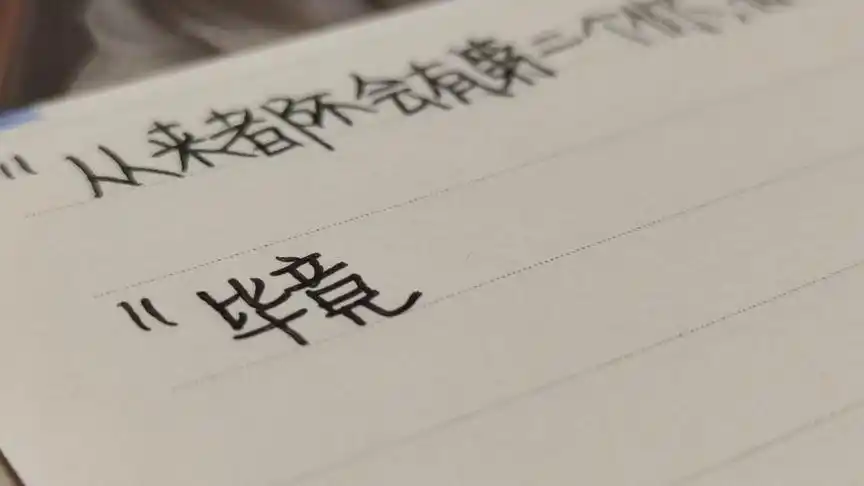 "从来都不会有第二个你
"毕竟